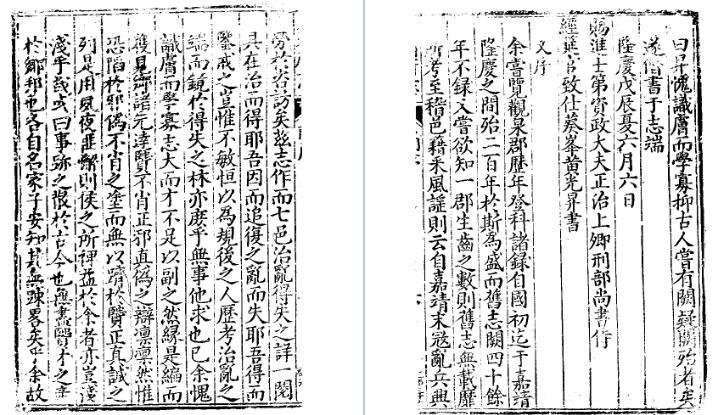 曰昇愧識膚而學寡抑古人嘗有闕疑闕殆者矣
遂僭書于志端
隆慶戊辰夏六月六日
賜進士第資政大夫正治上卿刑部尚書侍
經筵官致仕葵峯黃光昇書
又序
余嘗覽觀泉郡歷年登科諸錄自國初迄于嘉靖
隆慶之間殆二百年於斯為盛而舊志闕四十餘
年不錄入嘗欲知一郡生齒之數則舊志無載靡
所考至稽邑籍采風謠則云自嘉靖末寇亂兵興
勞於咨訪矣茲志作而七邑治亂得失之詳一閱
具在治而得耶吾因而追復之亂而失耶吾得而
鑒戒之豈惟不敏恒以為規後之人歷考治亂之
端而鏡於得失之林亦庶乎無事他求也已余愧
識膚而學寡志大而才不足以副之然緣是編而
獲見鄉諸先達賢不肖正邪真偽之辯凜凜然惟
恐陷於邪偽不肖之塗而無以躋於賢正真誠之
列是用夙夜匪懈則侯之所裨益於今者亦豈淺
淺乎哉或曰事跡之散於古今也無盡賢才之生
於鄒邦也各自名家子安知其無疎畧矣乎余故